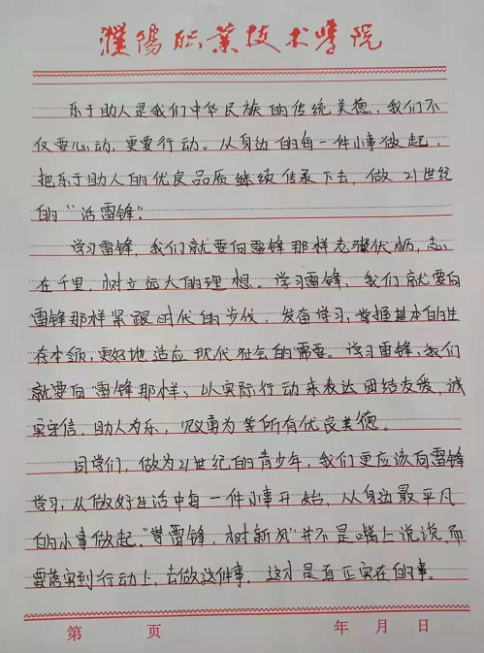 濮阳职业技术学院
乐于助人是我们中华民族的传统美德，我们不
仅要心动，更要行动。从身边的每一件小事做起，
把乐于助人的优良品质继续传承下去，做21世纪
的“活雷锋”。
学习雷锋，我们就要向雷锋那样老骥伏枥，志
在千里，树立远大的理想。学习雷锋，我们就要向
雷锋那样紧跟时代的步伐，发奋学习，掌握基本的生
存本领，更好地适应现代社会的需要。学习雷锋，我们
就要向雷锋那样，以实际行动来表达团结友爱，诚
实守信，助人为乐，见义勇为等所有优良美德。
同学们，做为21世纪的青少年，我们更应该向雷锋
学习，从做好生活中每一件小事开始，从身边最平凡
的小事做起，“学雷锋，树新风”并不是嘴上说说，而
要落实到行动上，去做这件事，这才是真正实在的事。
第 页 年 月 日